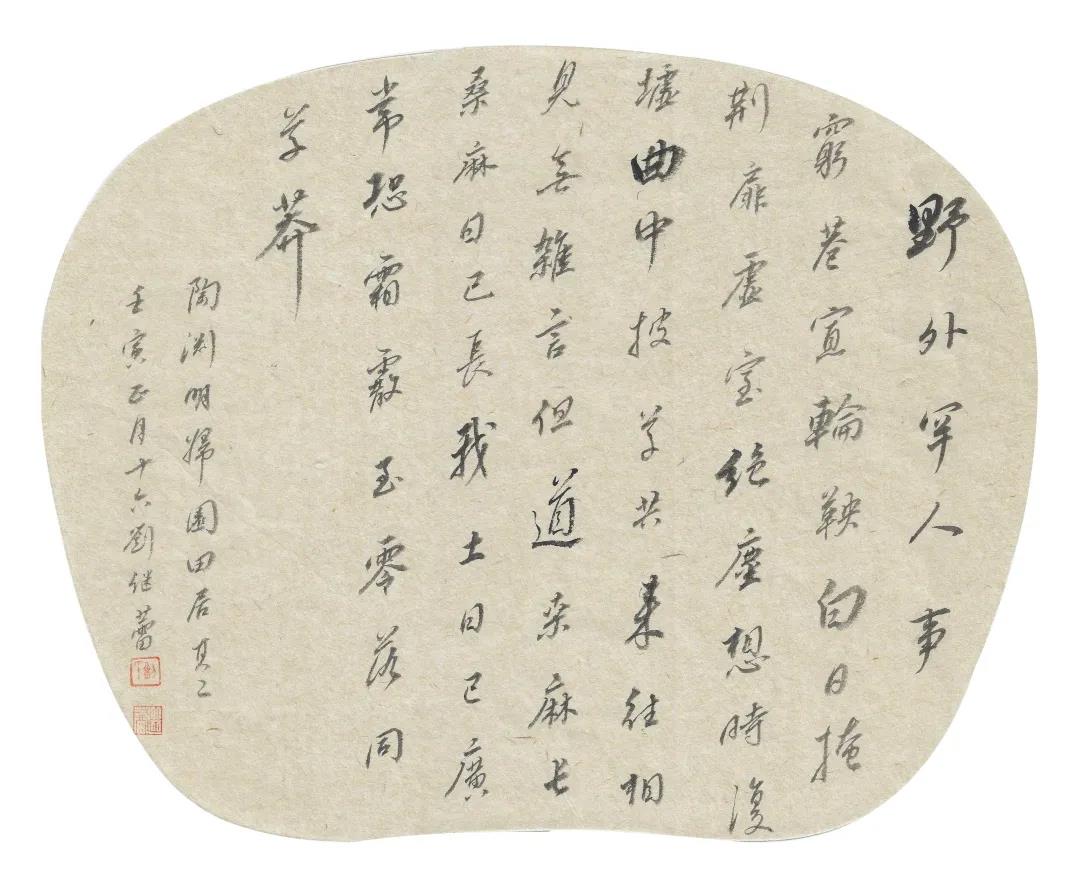 野外罕人事
窮巷寡輪鞅白日掩
荆扉虛室絕塵想時復
墟曲中披草共来往相
見無雜言但道桑麻長
桑麻日已長我土日已廣
常恐霜霰至零落同
草莽
陶渊明歸園田居其二
壬寅正月十六劉继蕾